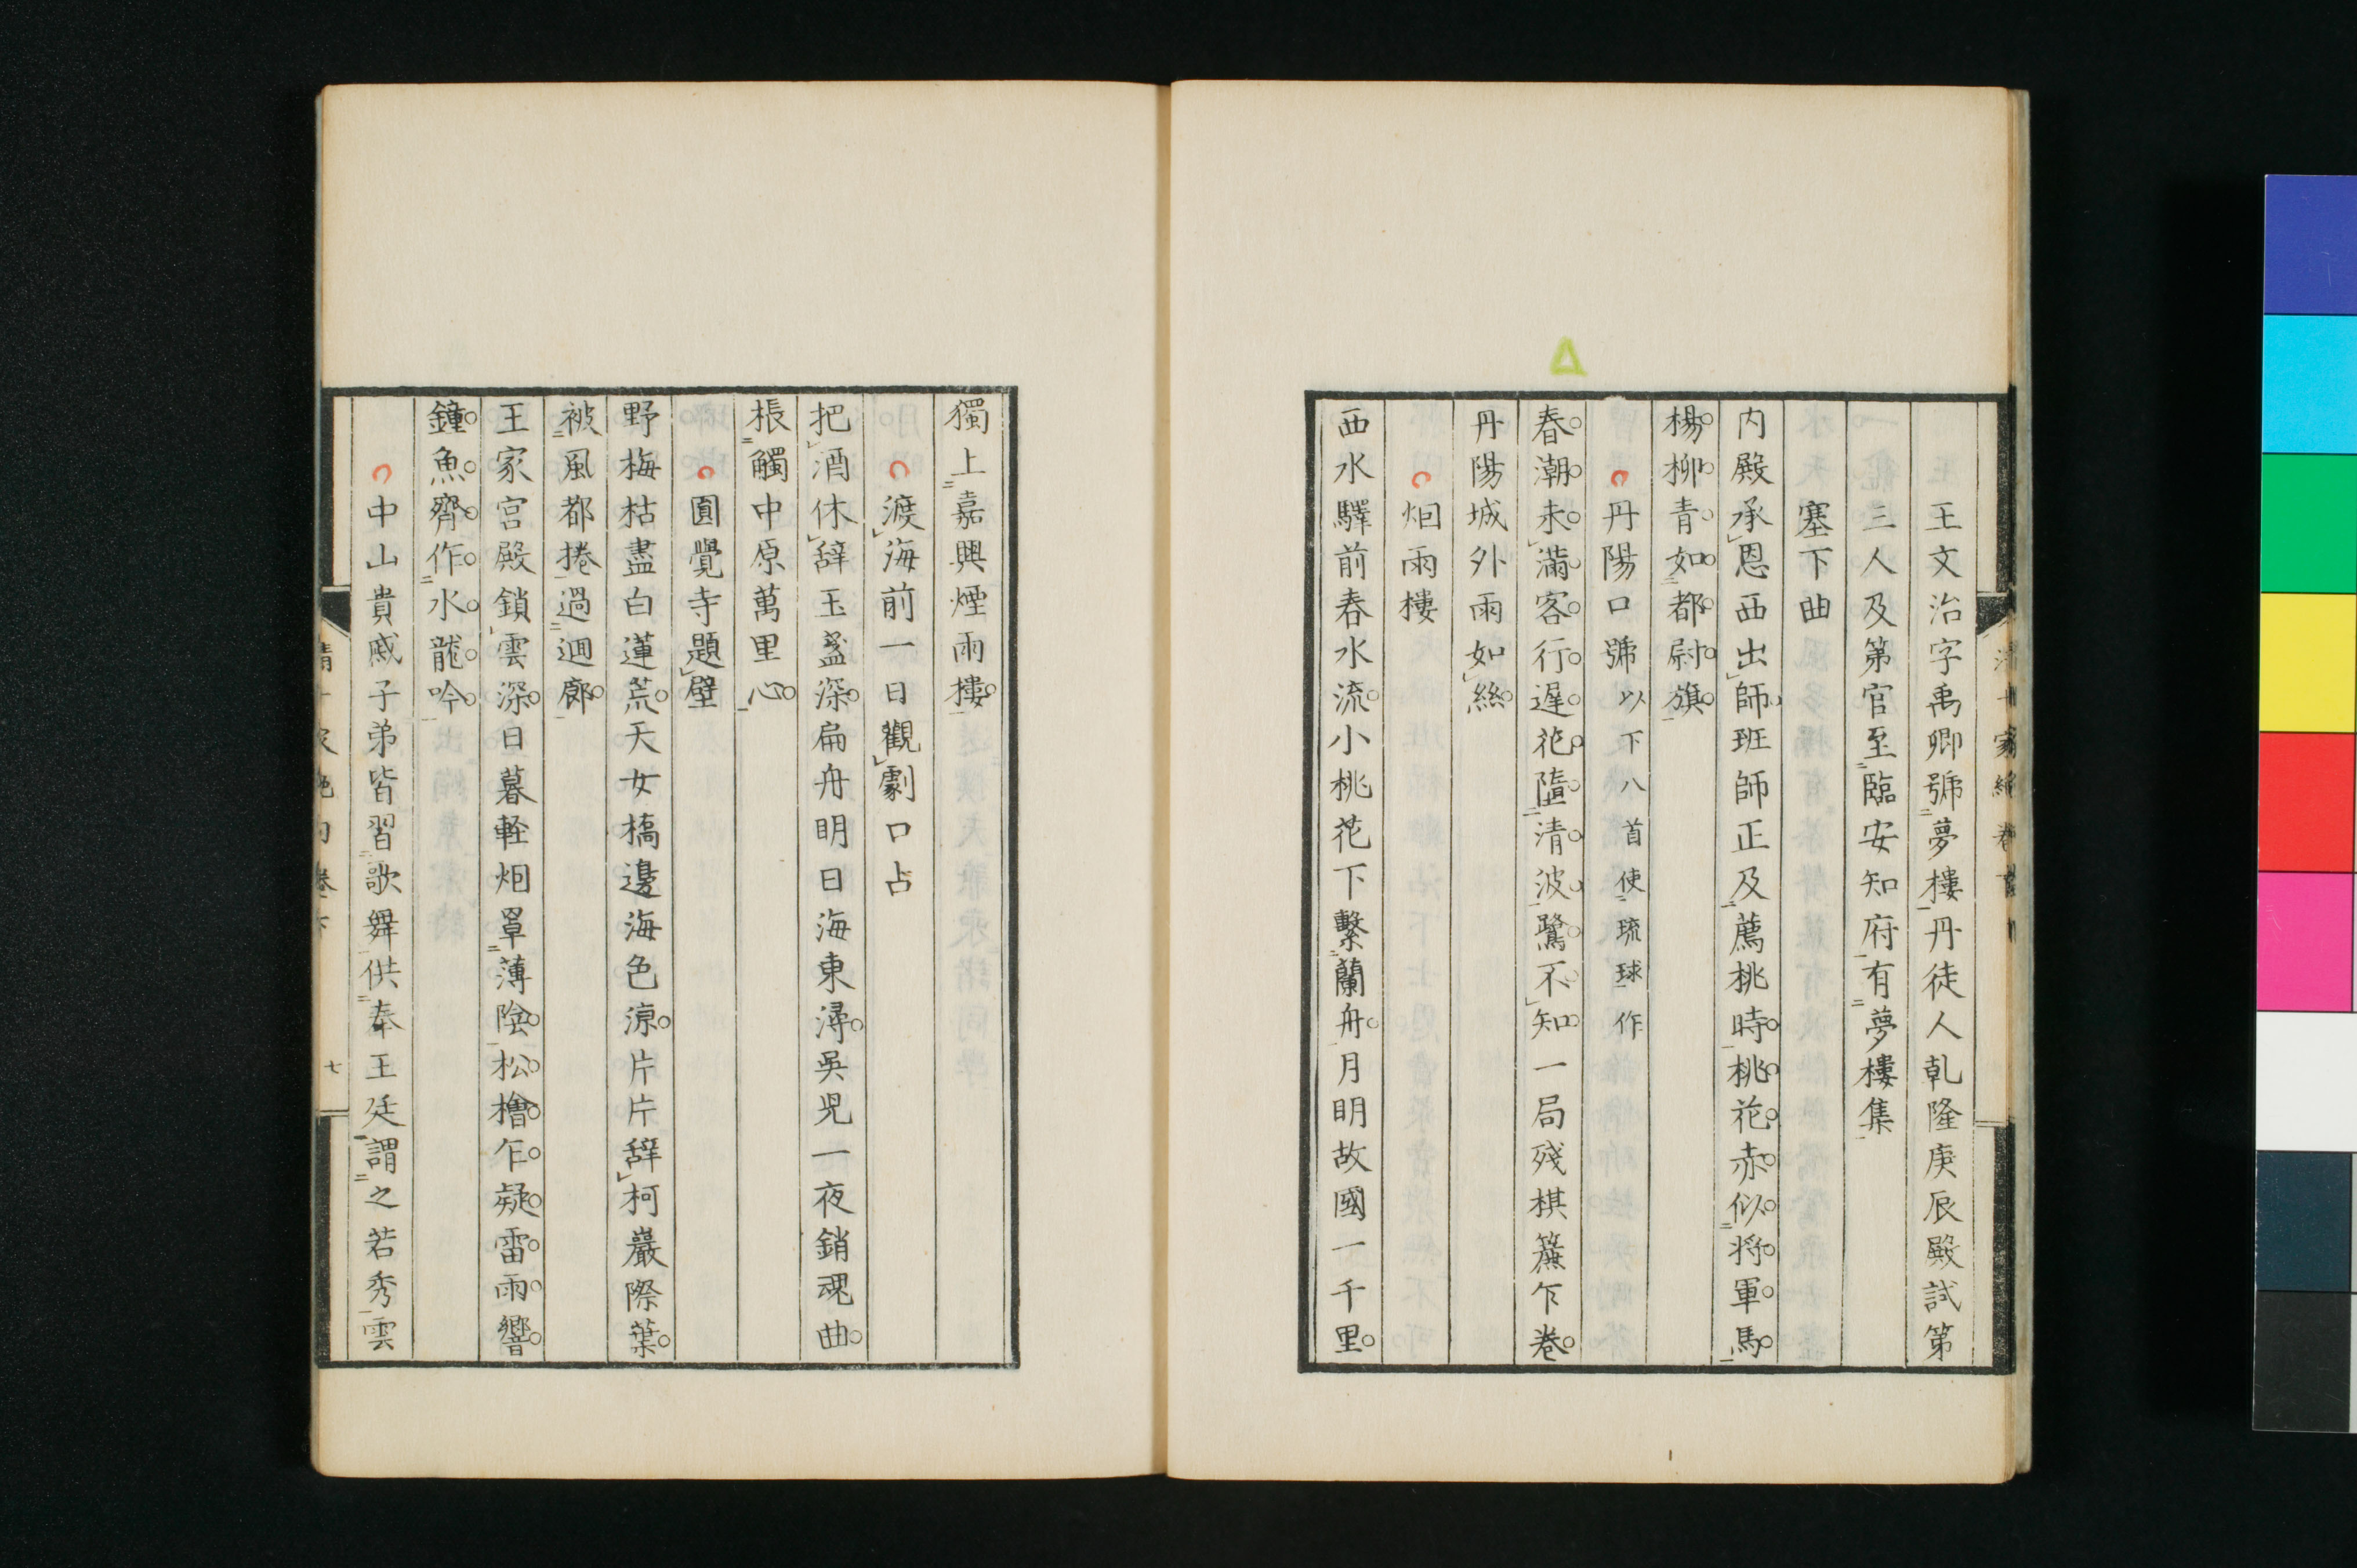 王文治字禹卿號夢樓丹徒人乹隆庚辰殿試第
三人及第官至臨安知府有夢樓集
塞下曲
内殿承恩西出師班師正及薦桃時桃花赤似将軍馬
楊柳青如都尉旗
丹陽口號以下八首使琉球作
春潮未滿客行遲花墮清波鷺不知一局殘棋簾乍卷
丹陽城外雨如絲
烟雨樓
西水驛前春水流小桃花下繫蘭舟月明故國一千里
獨上嘉興煙雨樓
渡海前一日觀劇口占
把酒休辭玉盞深扁舟明日海東潯吳児一夜銷魂曲
棖觸中原萬里心
圓覺寺題壁
野梅枯盡白蓮荒天女橋邊海色涼片片辭柯巖際葉
被風都捲過迴廊
王家宮殿鎖雲深日暮軽烟罩薄陰松檜乍疑雷雨響
鐘魚齊作水龍吟
中山貴戚子弟皆習歌舞供奉王廷謂之若秀雲
七